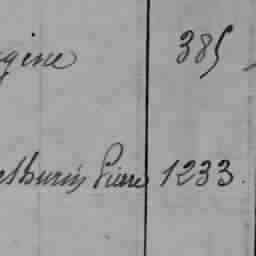 gine 385
athurin Pierre 1233.